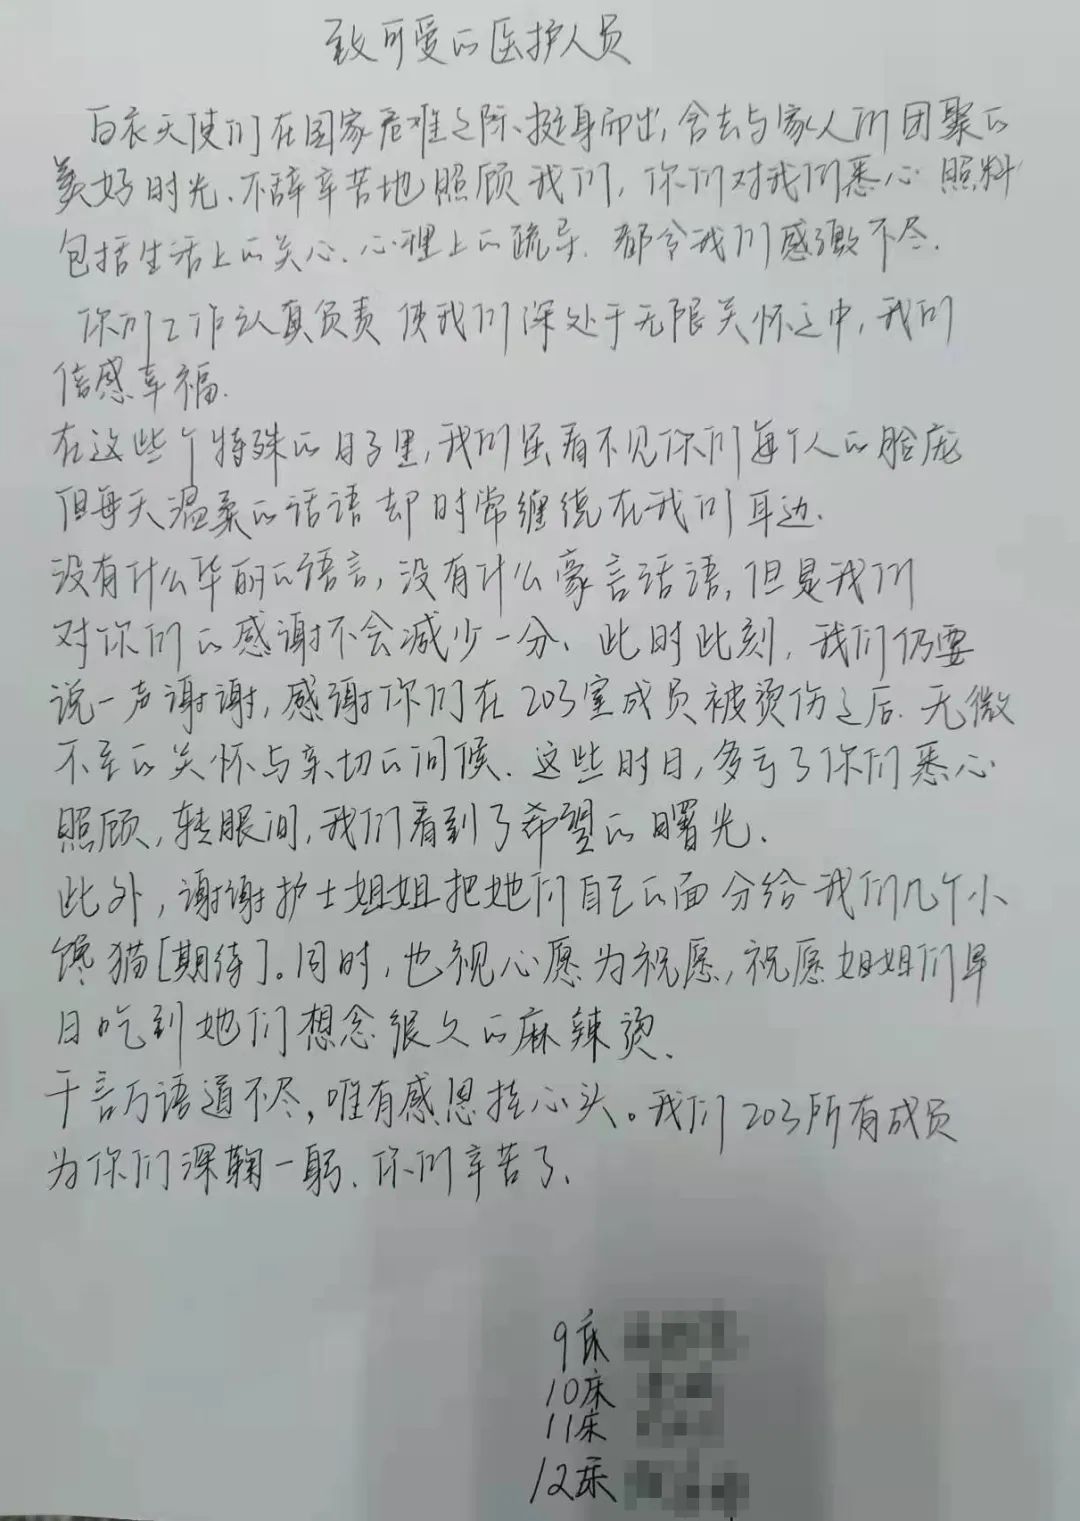 致可爱的医护人员
白衣天使们在国家危难之际、挺身而出,舍去与家人们团聚的
美好时光、不辞辛苦地照顾我们,你们对我们悉心照料
包括生活上的关心、心理上的疏导.都令我们感激不尽.
你们工作认真负责使我们深处于无限关怀之中,我们
倍感幸福.
在这些个特殊的日子里,我们虽看不见你们每个人的脸庞
但每天温柔的话语却时常缠绕在我们耳边.
没有什么华丽的语言,没有什么豪言话语,但是我们
对你们的感谢不会减少一分、此时此刻,我们仍要
说一声谢谢,感谢你们在203室成员被烫伤之后.无微
不至的关怀与亲切的问候.这些时日,多亏了你们悉心
照顾,转眼间,我们看到了希望的曙光.
此外,谢谢护士姐姐把她们自己的面分给我们几个小
馋猫[期待]。同时,也视心愿为祝愿,祝愿姐姐们早
日吃到她们想念很久的麻辣烫.
千言万语道不尽,唯有感恩挂心头。我们203所有成员
为你们深鞠一躬.你们辛苦了.
9床
10床
11床
12床